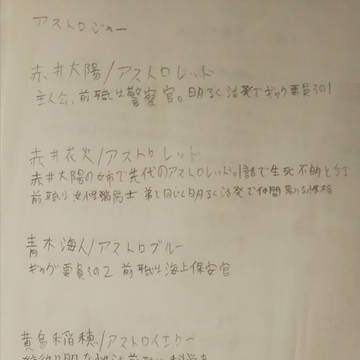 アストロジャー
赤井太陽/アストロレッド
主人公、前職は警察官。明るく活発でギャグ要員その1
赤井花火/アストロレッド
赤井太陽の姉で先代のアストロレッド。1話で生死不明となる
前職は女性消防士 弟と同じく明るく活発で仲間思いな性格
青木海人/アストロブルー
ギャグ要員その2 前職は海上保安官
黄島稲穂/アストロイエロー